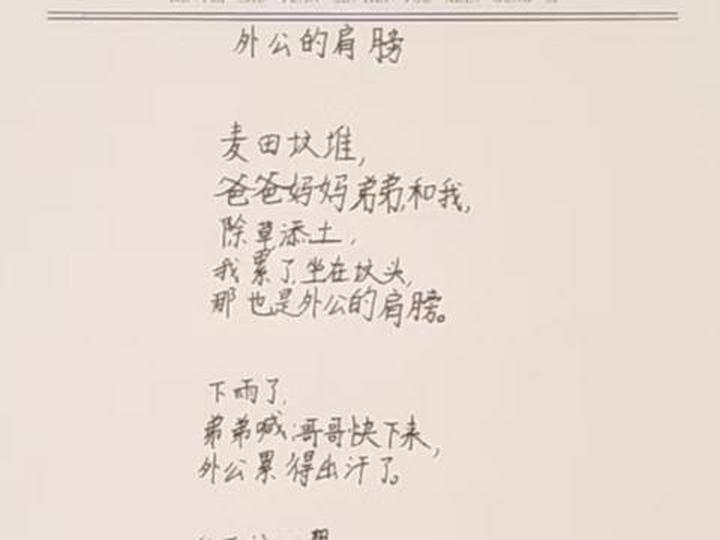 外公的肩膀
麦田坟堆,
爸爸妈妈弟弟,和我,
除草添土,
我累了,坐在坟头,
那也是外公的肩膀。
下雨了,
弟弟喊:哥哥快下来,
外公累得出汗了。